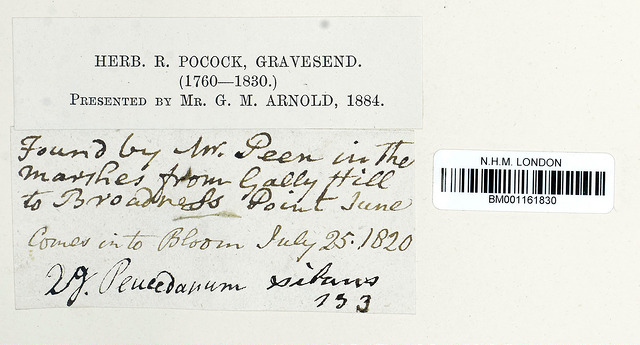 HERB. R. POCOCK, GRAVESEND.
(1760—1830.)
PRESENTED BY MR. G. M. ARNOLD, 1884.
Found by Mr. Peen in the
marshes from Gally Hill
to Broadness Point June
Comes into Bloom July 25. 1820
Peucedanum
133
N.H.M. LONDON
BM001161830